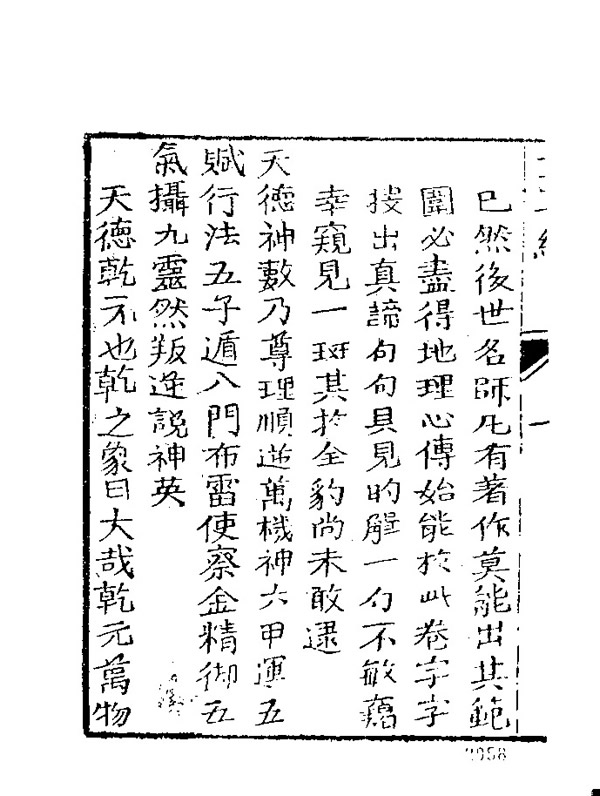 已然後世名師凡有著作莫能出其範
圍必盡得地理心傳始能於此卷字字
搜出真諦句句具見的解一勺不敏竊
幸窺見一斑其於全豹尚未敢逮
天德神數乃尊理順逆萬機神六甲運五
賦行法五子遁八門布雷使察金精御五
氣攝九靈然叛逆說神英
天德乾元也乾之象曰大哉乾元萬物
一
2958